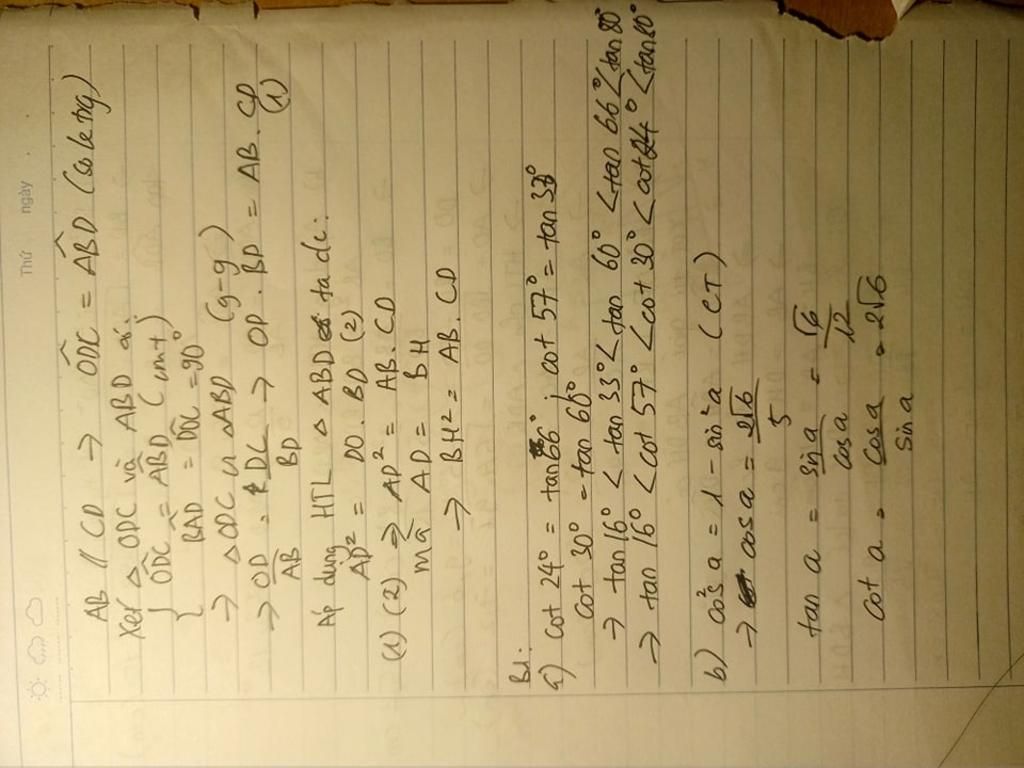 Thứ ngày
AB // CD → ODĈ = AB̂D (so le trg)
Xét △ ODC và ABD có:
ODĈ = AB̂D (cmt)
BÂD = DÔC = 90°
→ △ ODC ∽ △ABD (g-g)
→ OD/AB = DC/BD → OD . BD = AB . CD (1)
Áp dụng HTL △ ABD ta dc:
AD² = DO . BD (2)
(1) (2) → AD² = AB . CD
mà AD = BH
→ BH² = AB . CD
B1:
a) cot 24° = tan 66° ; cot 57° = tan 33°
cot 30° = tan 60°
→ tan 16° < tan 33° < tan 60° < tan 66° < tan 80°
→ tan 16° < cot 57° < cot 30° < cot 24° < tan 80°
b) cos² a = 1 - sin² a (CT)
→ cos a = 2√6/5
tan a = sin a/cos a = √6/12
cot a = cos a/sin a = 2√6